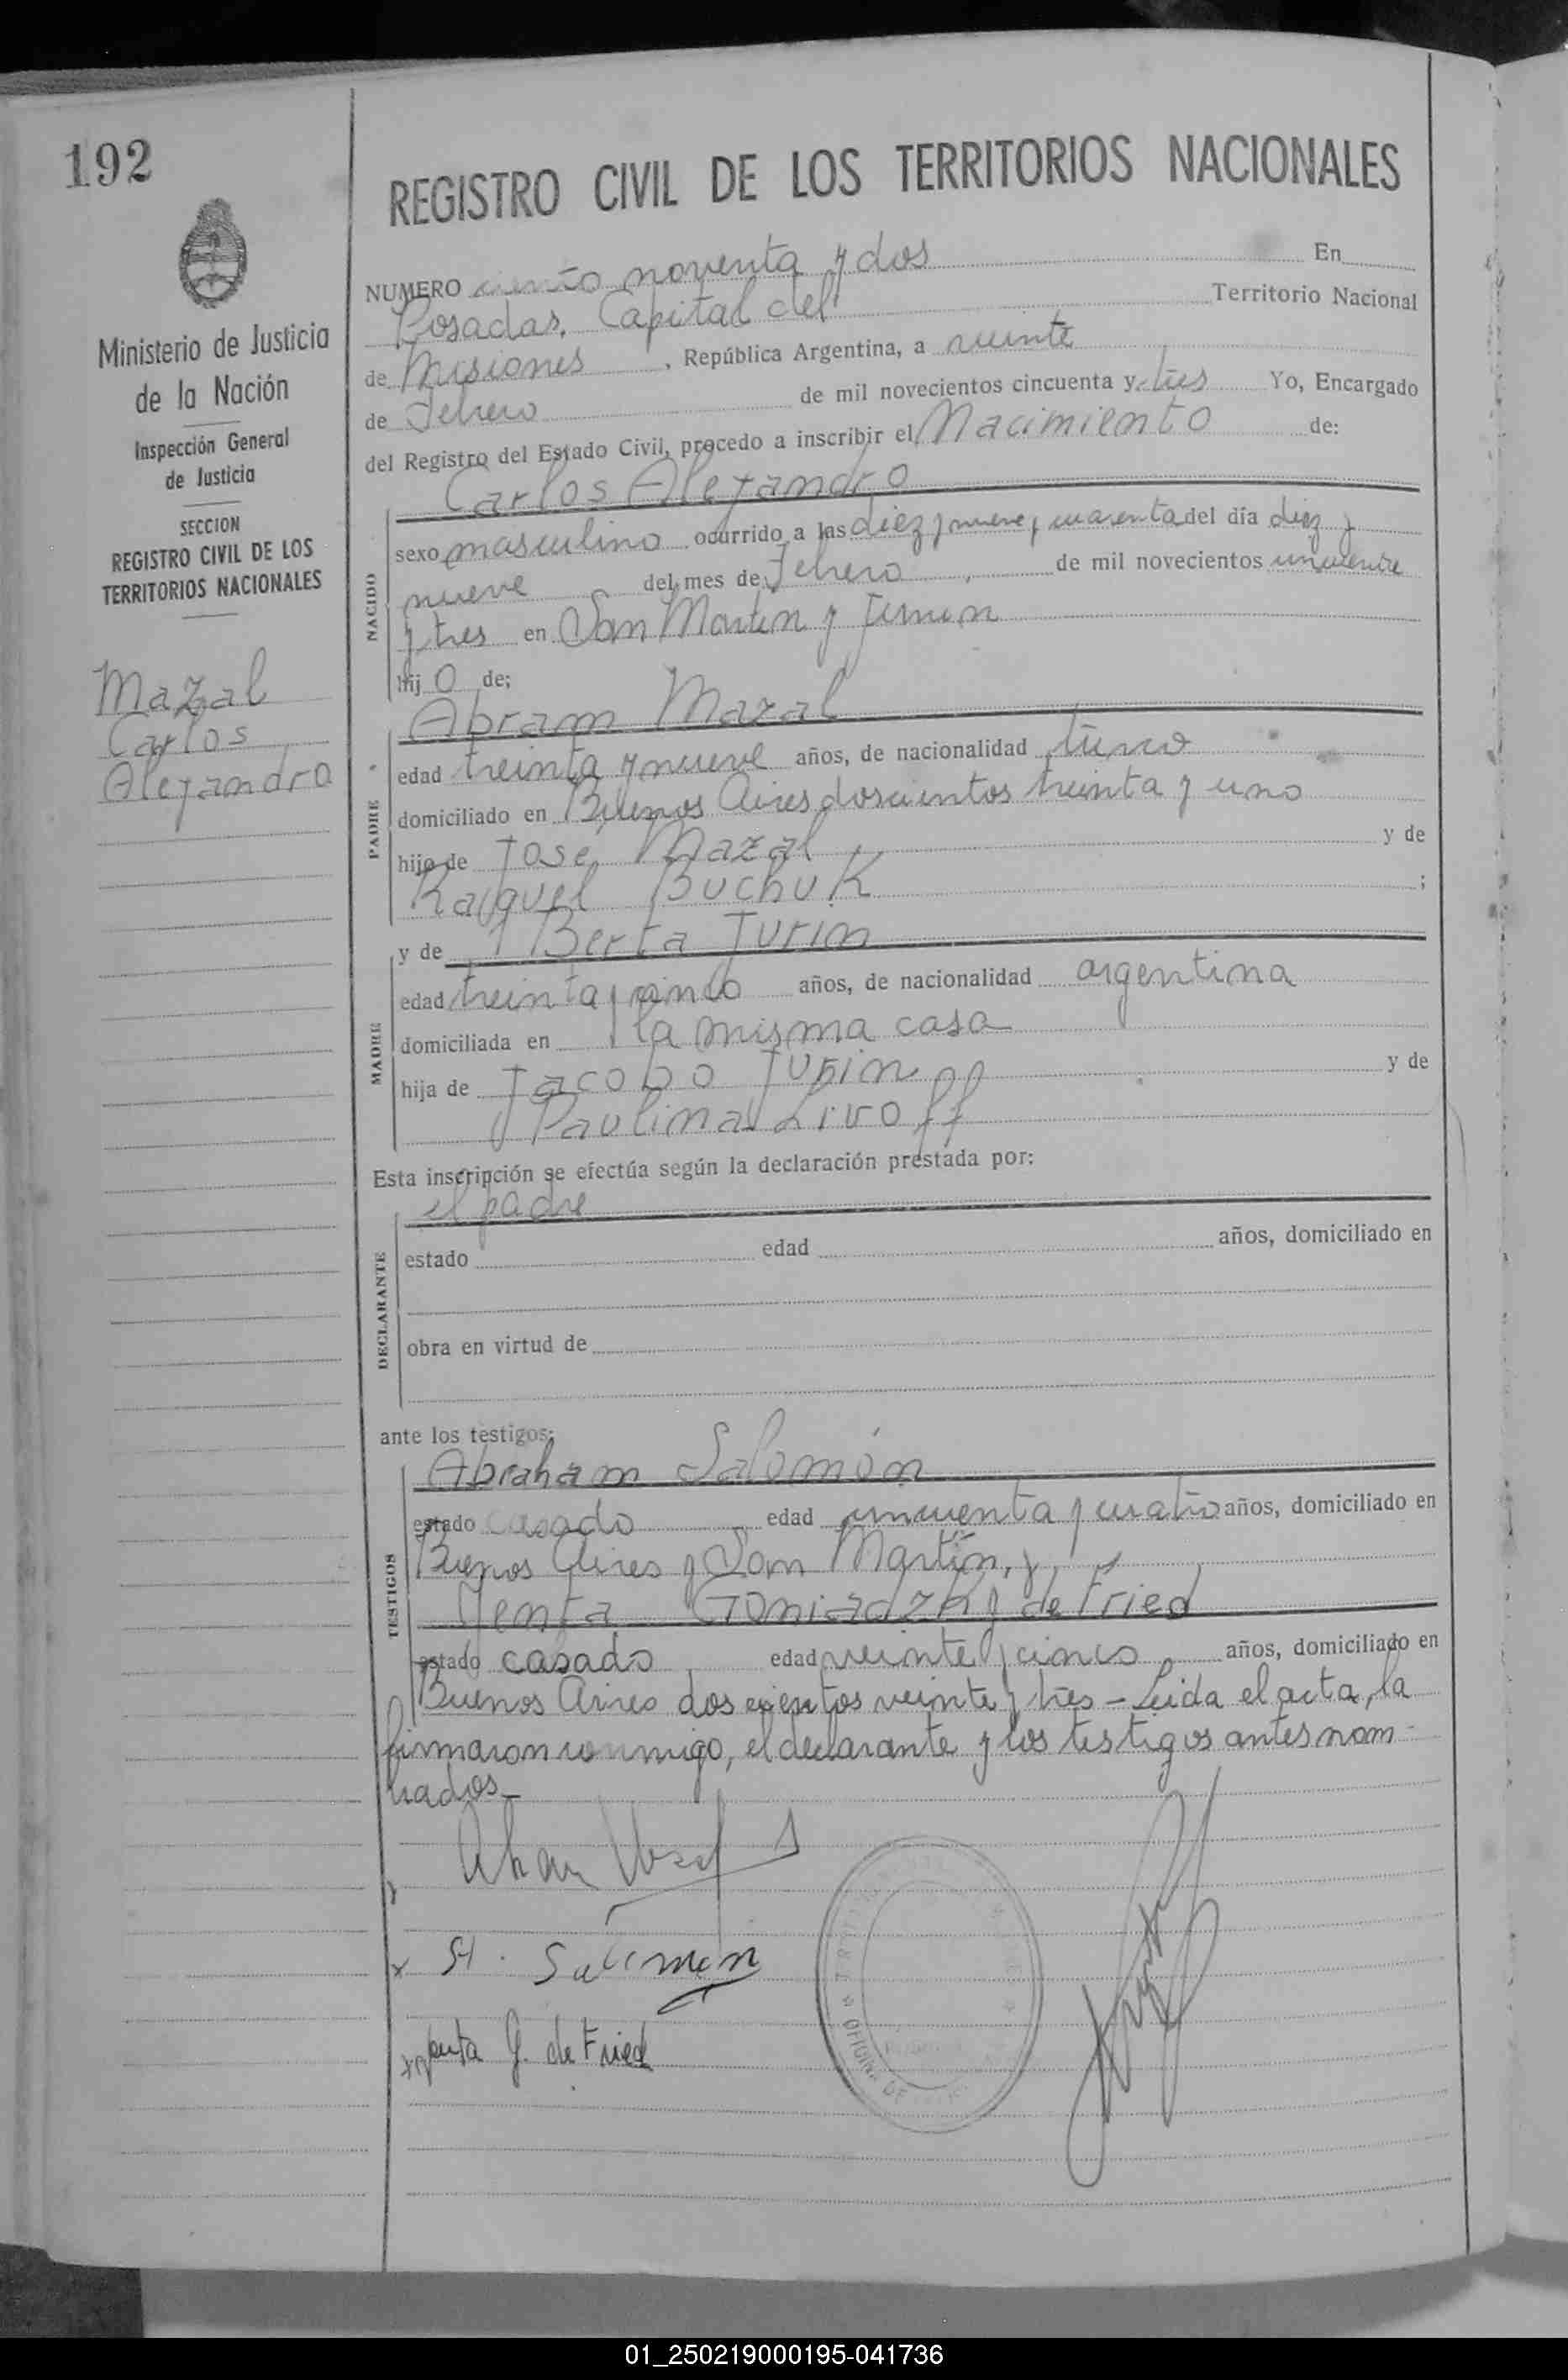 192
Ministerio de Justicia
de la Nación
Inspección General
de Justicia
SECCION
REGISTRO CIVIL DE LOS
TERRITORIOS NACIONALES
Mazal
Carlos
Alejandro
REGISTRO CIVIL DE LOS TERRITORIOS NACIONALES
NUMERO ciento noventa y dos En
Posadas, Capital del Territorio Nacional
de Misiones, República Argentina, a veinte
de Febrero de mil novecientos cincuenta y tres Yo, Encargado
del Registro del Estado Civil, procedo a inscribir el Nacimiento de:
Carlos Alejandro
NACIDO
sexo masculino ocurrido a las diez y nueve y cuarenta del día diez y
nueve del mes de Febrero de mil novecientos cincuenta
y tres en San Martin y Junin
hijo de;
Abram Mazal
PADRE
edad treinta y nueve años, de nacionalidad turco
domiciliado en Buenos Aires doscientos treinta y uno
hijo de Jose Mazal y de
Raquel Buchuk ;
y de Berta Jurin
MADRE
edad treinta y cinco años, de nacionalidad argentina
domiciliada en la misma casa
hija de Jacobo Jurin y de
Paulina Livoff
Esta inscripción se efectúa según la declaración prestada por:
el padre
DECLARANTE
estado edad años, domiciliado en
obra en virtud de
ante los testigos:
Abraham Salomón
TESTIGOS
estado casado edad cincuenta y cuatro años, domiciliado en
Buenos Aires y San Martín, y
Yenta Goniadzky de Fried
estado casado edad veinte y cinco años, domiciliado en
Buenos Aires doscientos veinte y tres - Leida el acta, la
firmaron conmigo, el declarante y los testigos antes nom-
brados-
A. Salomon
Yenta G. de Fried
OFICINA DE
01_250219000195-041736